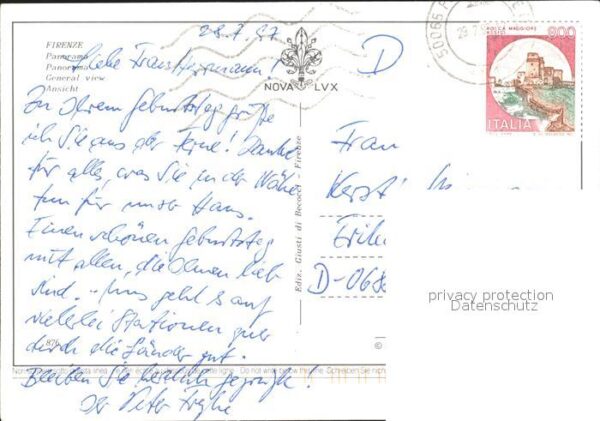 28.7.97
FIRENZE
Panorama
Panorama
General view
Ansicht
Liebe Frau Herrmann!
Zu Ihrem Geburtstag grüße
ich Sie aus der Ferne! Danke
für alles, was Sie in der Nähe
tun für unser Haus.
Einen schönen Geburtstag
mit allen, die Ihnen lieb
sind. - Uns geht's auf
vielerlei Stationen quer
durch die Länder gut.
Bleiben Sie herzlich gegrüßt!
Ihr Peter
NOVA LVX
Ediz. Giusti di Becocci - Firenze
D
Frau
D-068
50065
29.7
ROCCA MAGGIORE
ASSISI
800
ITALIA
876
©
Do not write below this line
privacy protection
Datenschutz